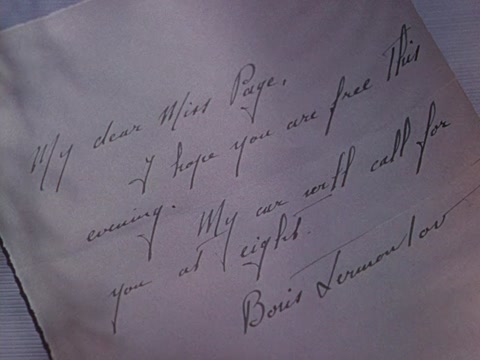 My dear Miss Page,
I hope you are free This
evening. My car will call for
you at eight.
Boris Lermontov